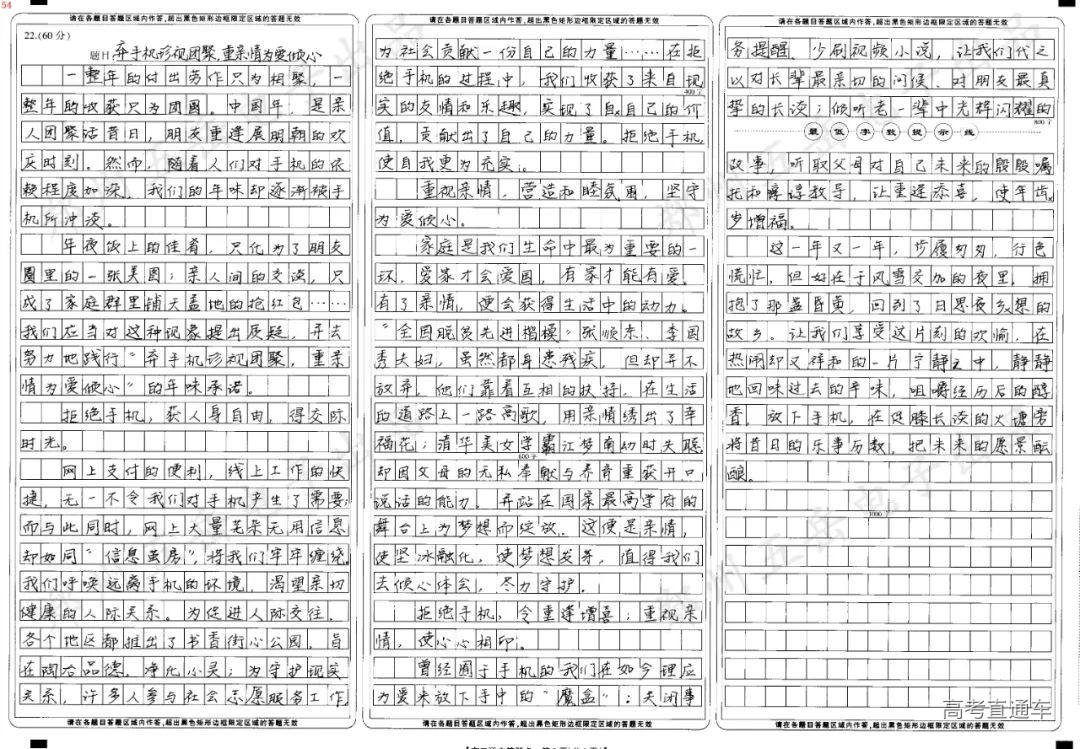 54
请在各题目答题区域内作答,超出黑色矩形边框限定区域的答题无效
22.(60分)
题目 弃手机珍视团聚,重亲情为爱倾心
一整年的付出劳作只为相聚,一
整年的收获只为团圆。中国年,是亲
人团聚话昔日,朋友重逢展明朝的欢
庆时刻。然而,随着人们对手机的依
赖程度加深,我们的年味却逐渐被手
机所冲淡。
年夜饭上的佳肴,只化为了朋友
圈里的一张美图;亲人间的交谈,只
成了家庭群里铺天盖地的抢红包……
我们应当对这种现象提出质疑,并去
努力地践行“弃手机珍视团聚,重亲
情为爱倾心”的年味承诺。
拒绝手机,获人身自由,得交际
时光。
网上支付的便利,线上工作的快
捷,无一不令我们对手机产生了需要;
而与此同时,网上大量芜杂无用信息
却如同“信息茧房”,将我们牢牢缠绕。
我们呼唤远离手机的环境,渴望亲切
健康的人际关系。为促进人际交往,
各个地区都推出了书香街心公园,旨
在陶冶品德,净化心灵;为守护现实
关系,许多人参与社会志愿服务工作,
请在各题目答题区域内作答,超出黑色矩形边框限定区域的答题无效
请在各题目答题区域内作答,超出黑色矩形边框限定区域的答题无效
为社会贡献一份自己的力量……在拒
绝手机的过程中,我们收获了来自现
400字
实的友情和乐趣,实现了自己的价
值,贡献出了自己的力量。拒绝手机,
使自我更为充实。
重视亲情,营造和睦氛围,坚守
为爱倾心。
家庭是我们生命中最为重要的一
环,爱家才会爱国,有家才能有爱。
有了亲情,便会获得生活中的动力。
“全国脱贫先进楷模”张顺东、李国
秀夫妇,虽然都身患残疾,但却并不
放弃,他们靠着互相的扶持,在生活
的道路上一路高歌,用亲情绣出了幸
福花;清华美女学霸江梦南幼时失聪
600字
却因父母的无私奉献与养育重获开口
说话的能力,并站在国家最高学府的
舞台上为梦想而绽放。这便是亲情,
使坚冰融化,使梦想发芽,值得我们
去倾心体会,尽力守护。
拒绝手机,令重逢增喜;重视亲
情,使心心相印。
曾经囿于手机的我们在如今理应
为爱来放下手中的“魔盒”:关闭事
请在各题目答题区域内作答,超出黑色矩形边框限定区域的答题无效
请在各题目答题区域内作答,超出黑色矩形边框限定区域的答题无效
务提醒,少刷视频小说,让我们代之
以对长辈最亲切的问候,对朋友最真
挚的长谈;倾听老一辈中光辉闪耀的
800字
最低字数提示线
故事,听取父母对自己未来的殷殷嘱
托和谆谆教导,让重逢添喜,使年齿
岁增福。
这一年又一年,步履匆匆,行色
慌忙,但好在于风雪交加的夜里,拥
抱了那盏昏黄,回到了日思夜想的
故乡。让我们享受这片刻的欢愉,在
热闹却又祥和的一片宁静之中,静静
地回味过去的年味,咀嚼经历后的醇
香,放下手机,在促膝长谈的火塘旁
将昔日的乐事历数,把未来的愿景酝
酿。
1000字
请在各题目答题区域内作答,超出黑色矩形边框限定区域的答题无效
高考直通车